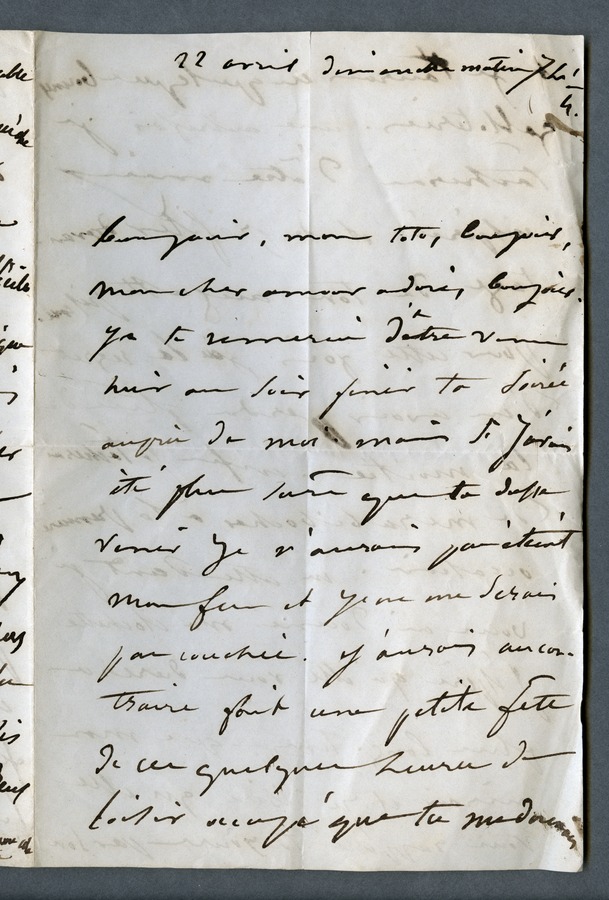 22 avril dimanche matin 7 h. ¼.
bonjour, mon toto, bonjour,
mon cher amour adoré, bonjour.
Je te remercie d'être venu
hier au soir finir ta soirée
auprès de moi mais si j'avais
été plus sûre que tu dusses
venir je n'aurais pas éteint
mon feu et je ne me serais
pas couchée. j'aurais au con-
traire fait une petite fête
de ces quelques heures de
loisir occupé que tu me donnes